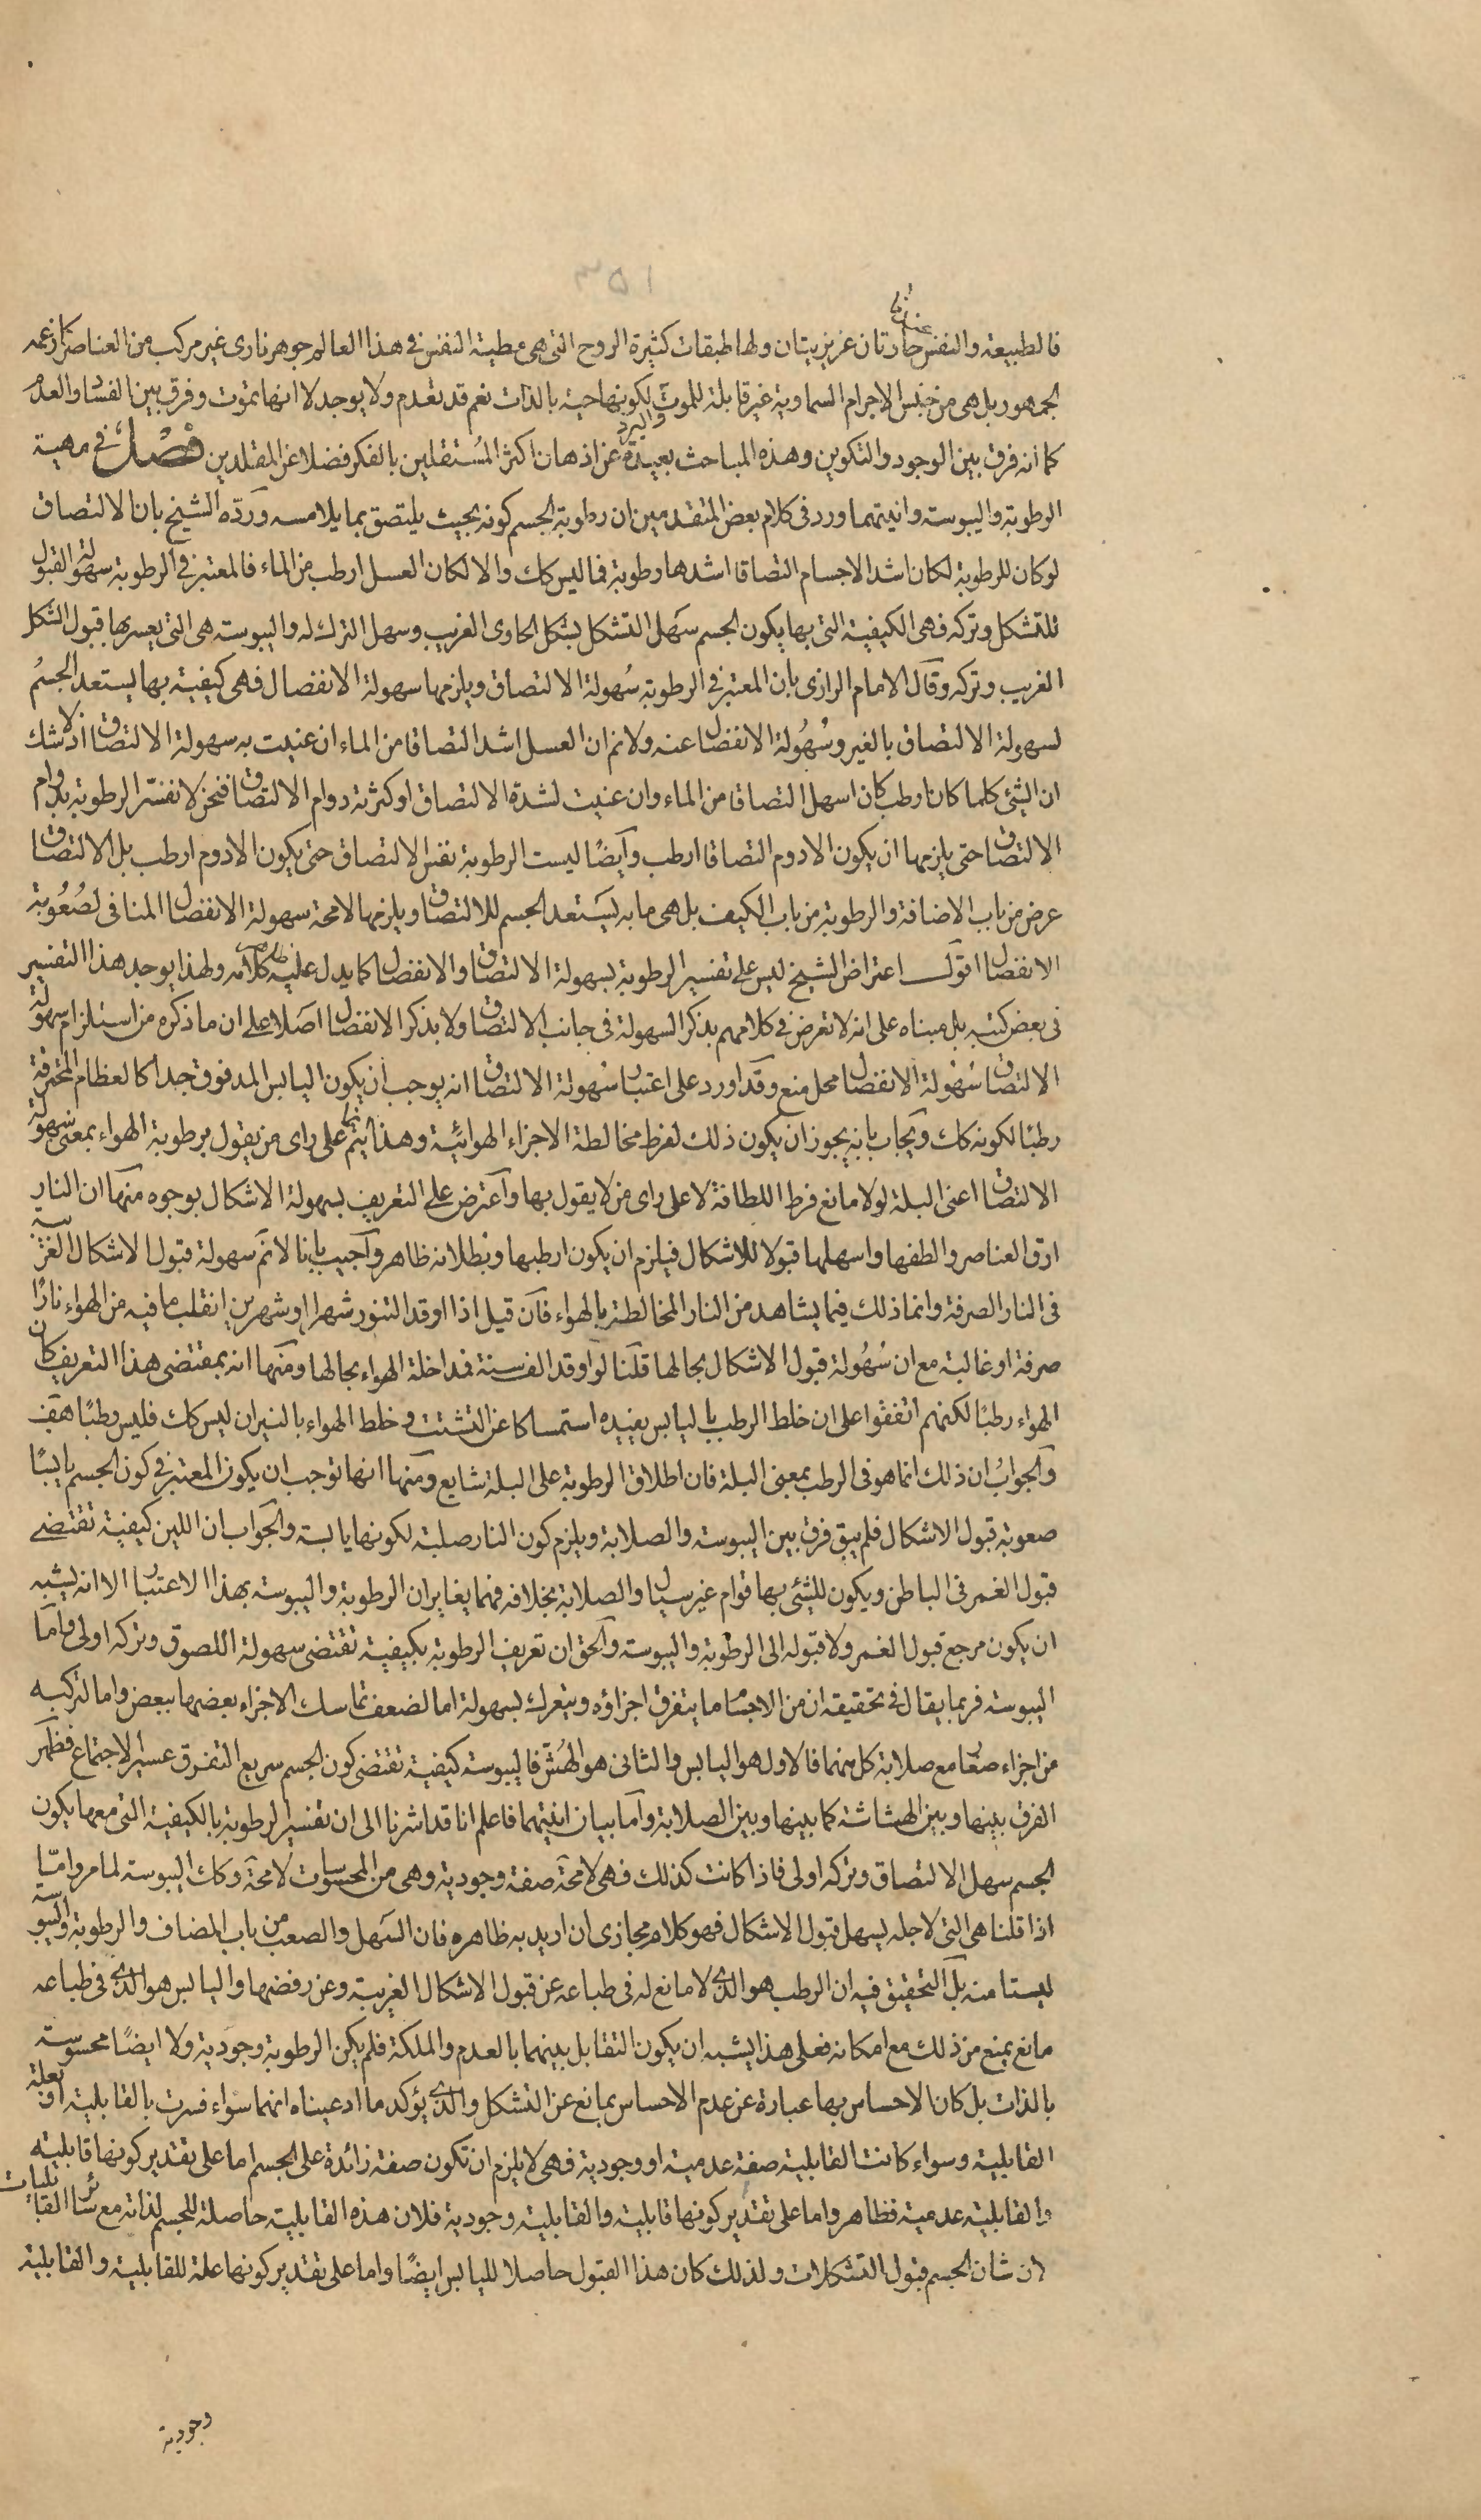 فالطبيعة والنفس حارتان عزيزيتان ولها طبقات كثيرة الروح التى هى مطية النفس فى هذا العالم جوهر نارى غير مركب من العناصر كما زعمه
الجمهور بل هى من جنس الاجرام السماوية غير قابلة للموت لكونها حية بالذات نعم قد تعدم ولا يوجد لا انها تموت وفرق بين الفساد والعدم
كما انه فرق بين الوجود والتكوين وهذه المباحث بعيدة عن اذهان اكثر المستقلين بالفكر فضلا عن المقلدين فصل فى مهية
الرطوبة واليبوسة وانيتهما ورد فى كلام بعض المتقدمين ان رطوبة الجسم كونه بحيث يلتصق بما يلامسه ورده الشيخ بان الالتصاق
لو كان للرطوبة لكان اشد الاجسام التصاقا اشدها رطوبة فما ليس كك والا لكان العسل ارطب من الماء فالمعتبر فى الرطوبة سهولة القبول
للتشكل وتركه فهى الكيفية التى بها يكون الجسم سهل التشكل بشكل الحاوى الغريب وسهل الترك له واليبوسة هى التى يعسر بها قبول الشكل
الغريب وتركه وقال الامام الرازى بان المعتبر فى الرطوبة سهولة الالتصاق ويلزمها سهولة الانفصال فهى كيفية بها يستعد الجسم
لسهولة الالتصاق بالغير وسهولة الانفصال عنه ولانم ان العسل اشد التصاقا من الماء ان عنيت به سهولة الالتصاق اذ لا شك
ان الشئ كلما كان ارطب كان اسهل التصاقا من الماء وان عنيت لشدة الالتصاق او كثرته دوام الالتصاق فنحن لا نفسر الرطوبة بدوام
الالتصاق حتى يلزمها ان يكون الادوم التصاقا ارطب وأيضا ليست الرطوبة نفس الالتصاق حتى يكون الادوم ارطب بل الالتصاق
عرض من باب الاضافة والرطوبة من باب الكيف بل هى ما به يستعد الجسم للالتصاق ويلزمها لامحة سهولة الانفصال المنافى لصعوبة
الانفصال اقول اعتراض الشيخ ليس على تفسير الرطوبة بسهولة الالتصاق والانفصال كما يدل عليه كلامه ولهذا يوجد هذا التفسير
فى بعض كتبه بل مبناه على انه لا تعرض فى كلامهم بذكر السهولة فى جانب الالتصاق ولا بذكر الانفصال اصلا على ان ما ذكره من استلزام سهولة
الالتصاق سهولة الانفصال محل منع وقد اورد على اعتبار سهولة الالتصاق انه يوجب ان يكون اليابس المدقوق جدا كالعظام المحترقة
رطبا لكونه كك ويجاب بانه يجوز ان يكون ذلك لفرط مخالطة الاجزاء الهوائية وهذا يتم على راى من يقول برطوبة الهواء بمعنى سهولة
الالتصاق اعنى البلة لولا مانع فرط اللطافة لا على راى من لا يقول بها واعترض على التعريف بسهولة الاشكال بوجوه منها ان النار
ارق العناصر والطفها واسهلها قبولا للاشكال فيلزم ان يكون ارطبها وبطلانه ظاهر واجيب بانا لا نم سهولة قبول الاشكال الغريبة
فى النار الصرفة وانما ذلك فيما يشاهد من النار المخالطة بالهواء فان قيل اذا اوقد التنور شهرا او شهرين انقلب ما فيه من الهواء نارا
صرفة او غالبة مع ان سهولة قبول الاشكال بحالها قلنا لو اوقد الف سنة فمداخلة الهواء بحالها ومنها انه بمقتضى هذا التعريف كان
الهواء رطبا لكنهم اتفقوا على ان خلط الرطب باليابس يفيده استمساكا عن التشتت وخلط الهواء بالنيران ليس كك فليس رطبا هف
والجواب ان ذلك انما هو فى الرطب بمعنى البلة فان اطلاق الرطوبة على البلة شايع ومنها انها توجب ان يكون المعتبر فى كون الجسم يابسا
صعوبة قبول الاشكال فلم يبق فرق بين اليبوسة والصلابة ويلزم كون النار صلبة لكونها يابسة والجواب ان اللين كيفية تقتضى
قبول الغمر فى الباطن ويكون للشئ بها قوام غير سيال والصلابة بخلافه فهما يغايران الرطوبة واليبوسة بهذا الاعتبار الا انه يشبه
ان يكون مرجع قبول الغمر ولا قبوله الى الرطوبة واليبوسة والحق ان تعريف الرطوبة بكيفية تقتضى سهولة اللصوق وتركه اولى واما
اليبوسة فربما يقال فى تحقيقه ان من الاجسام ما يتفرق اجزاؤه ويتعرك بسهولة اما لضعف تماسك الاجزاء بعضها ببعض واما لتركبه
من اجزاء صغار مع صلابة كل منهما فالاول هو اليابس والثانى هو الهش فاليبوسة كيفية تقتضى كون الجسم سريع التفرق عسير الاجتماع فظهر
الفرق بينها وبين الهشاشة كما بينها وبين الصلابة واما بيان انيتهما فاعلم انا قد اشرنا الى ان تفسير الرطوبة بالكيفية التى معها يكون
الجسم سهل الالتصاق وتركه اولى فاذا كانت كذلك فهى لامحة صفة وجودية وهى من المحسوسات لامحة وكك اليبوسة لما مر واما
اذا قلنا هى التى لاجله يسهل قبول الاشكال فهو كلام مجازى ان اريد به ظاهره فان السهل والصعب من باب المضاف والرطوبة واليبوسة
ليستا منه بل التحقيق فيه ان الرطب هو الذى لا مانع له فى طباعه عن قبول الاشكال الغريبة وعن رفضها واليابس هو الذى فى طباعه
مانع يمنع من ذلك مع امكانه فعلى هذا يشبه ان يكون التقابل بينهما بالعدم والملكة فلم يكن الرطوبة وجودية ولا ايضا محسوسة
بالذات بل كان الاحساس بها عبارة عن عدم الاحساس بمانع عن التشكل والذى يؤكد ما ادعيناه انهما سواء فسرت بالقابلية او بعلة
القابلية وسواء كانت القابلية صفة عدمية او وجودية فهى لا يلزم ان تكون صفة زائدة على الجسم اما على تقدير كونها قابلية
والقابلية عدمية فظاهر واما على تقدير كونها قابلية والقابلية وجودية فلان هذه القابلية حاصلة للجسم لذاته مع سائر القابليات
لان شان الجسم قبول التشكلات ولذلك كان هذا القبول حاصلا لليابس ايضا واما على تقدير كونها علة للقابلية والقابلية
وجودية